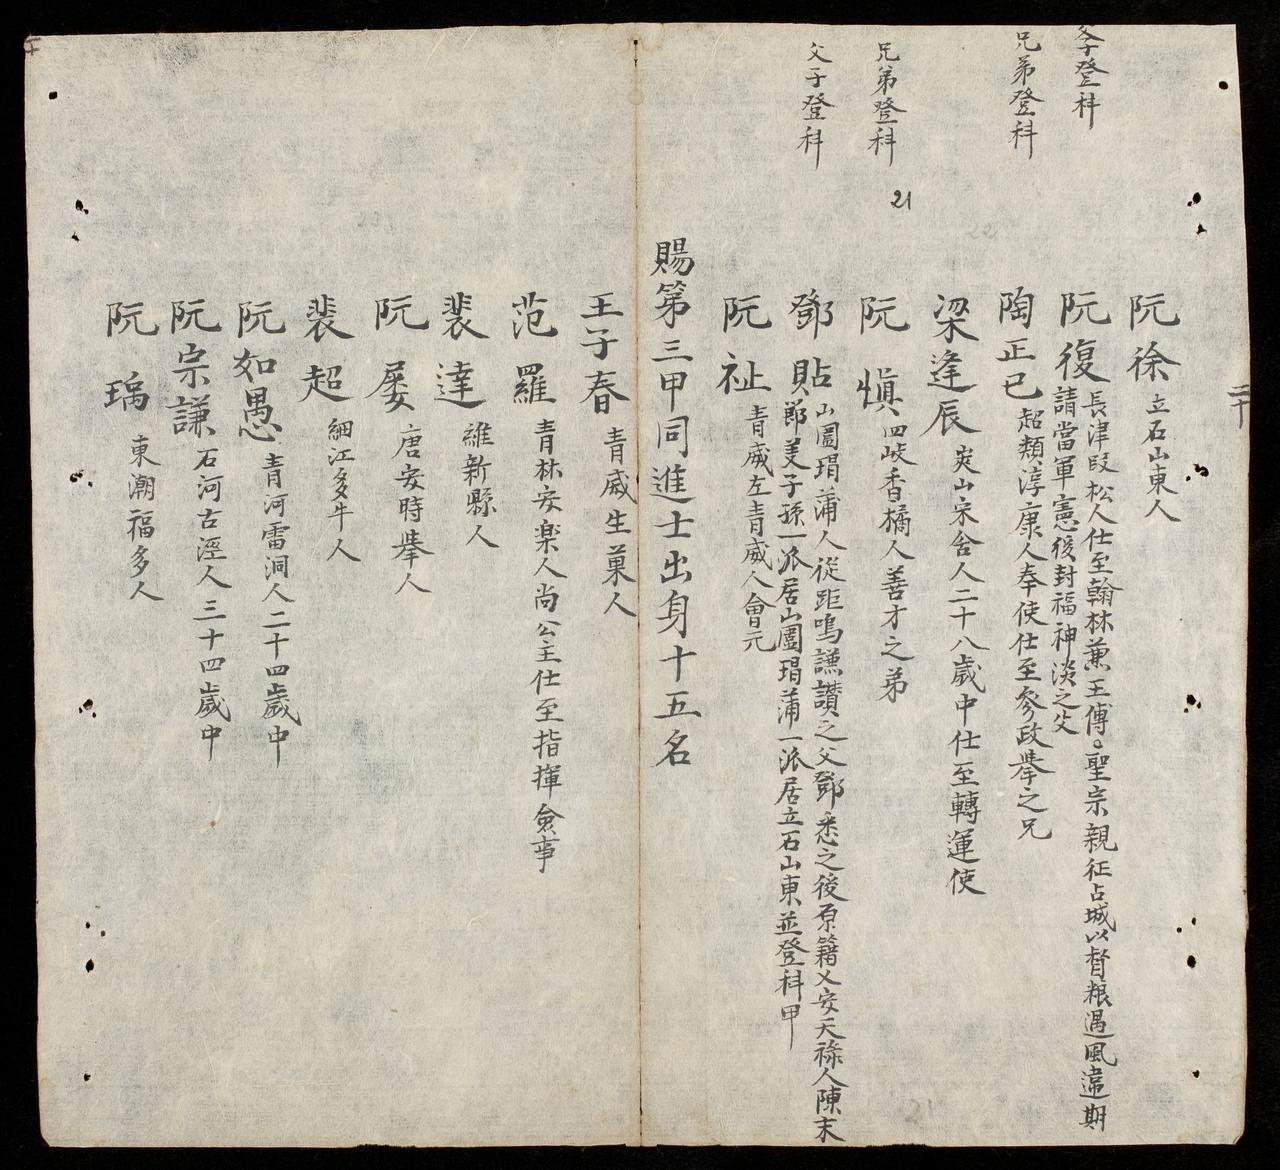 二十
父子登科
兄弟登科
兄弟登科
父子登科
21
阮徐 立石山東人
阮復 長津段松人仕至翰林兼王傅。聖宗親征占城以督粮遇風違期
請當軍憲後封福神淡之父
陶正已 超類淳康人奉使仕至參政舉之兄
梁逢辰 炎山宋舍人二十八歲中仕至轉運使
阮慎 四岐香橘人善才之弟
鄧貼 山圍瑁蒲人從距鳴謙讃之父鄧悉之後原籍乂安天祿人陳末
鄧美子孫一派居山圍瑁蒲一派居立石山東並登科甲
阮祉 青威左青威人會元
賜第三甲同進士出身十五名
王子春 青威生菓人
范羅 青林安楽人尚公主仕至指揮僉事
裴達 維新縣人
阮屡 唐安時舉人
裴超 細江多牛人
阮如愚 青河雷洞人二十四歲中
阮宗謙 石河古淫人三十四歲中
阮瑀 東潮福多人